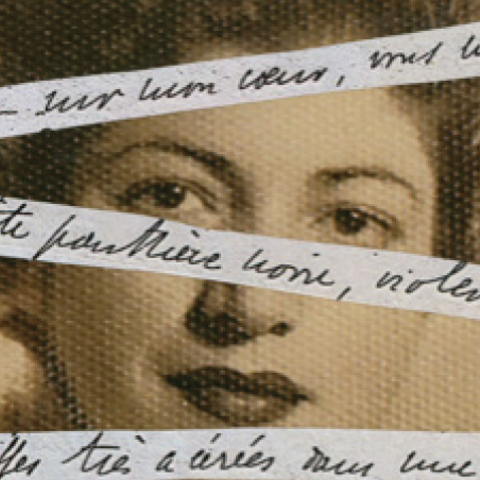 – sur mon cœur, vous
ite panthère noire, violen
ffes très acérées dans une